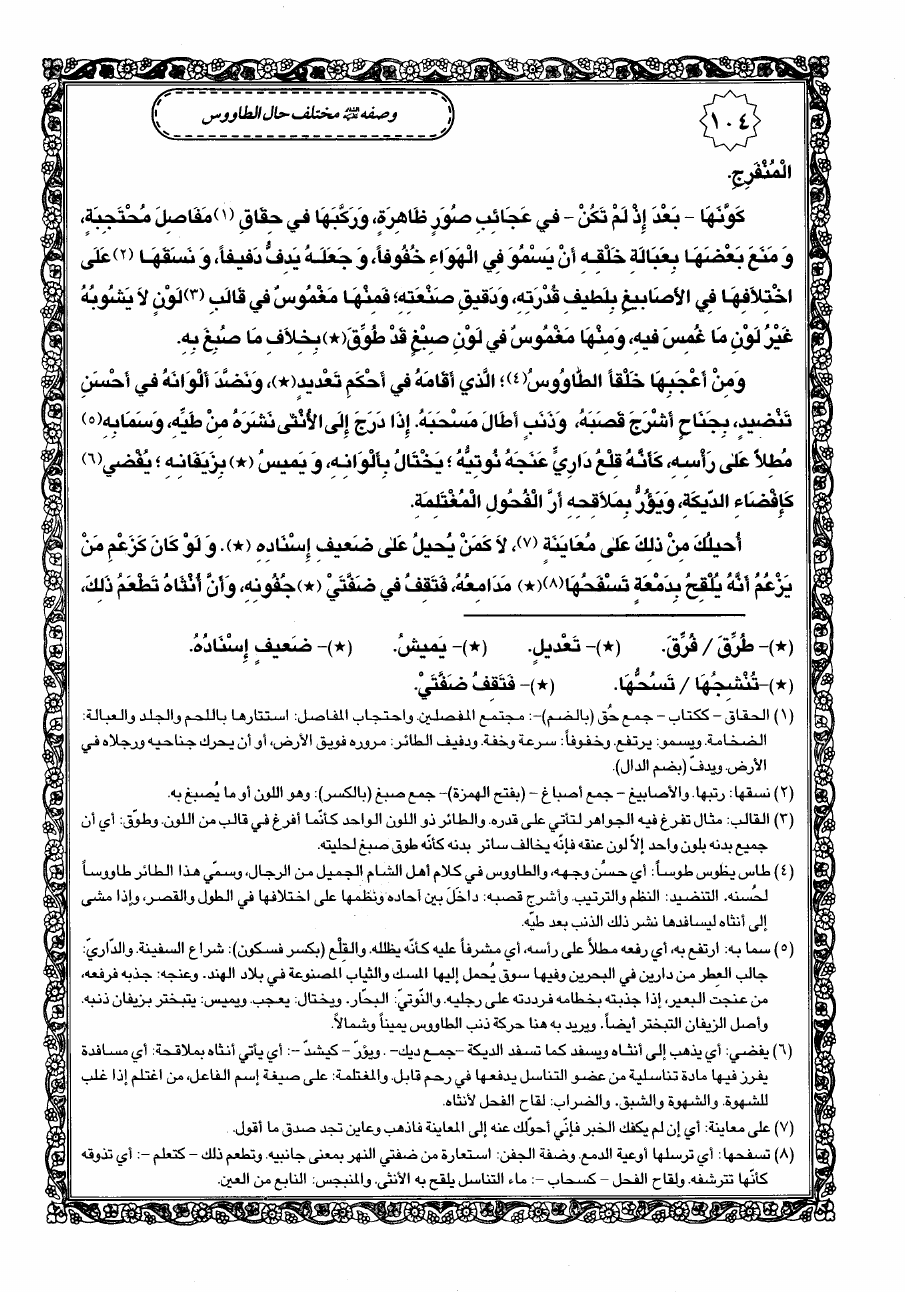 ١٠٤
وصفه عليه السلام مختلف حال الطاووس
الْمُنْفَرِجِ.
كَوَّنَهَا - بَعْدَ إِذْ لَمْ تَكُنْ - في عَجَائِبِ صُوَرٍ ظَاهِرَةٍ، وَرَكَّبَهَا في حِقَاقِ (١) مَفَاصِلَ مُحْتَجِبَةٍ،
وَ مَنَعَ بَعْضَهَا بِعَبَالَةِ خَلْقِهِ أَنْ يَسْمُوَ فِي الْهَوَاءِ خُفُوفاً، وَ جَعَلَهُ يَدِفُّ دَفيفاً، وَ نَسَقَهَا (٢) عَلَى
اخْتِلاَفِهَا فِي الأَصَابيغِ بِلَطيفِ قُدْرَتِهِ، وَدَقيقِ صَنْعَتِهِ؛ فَمِنْهَا مَغْمُوسٌ في قَالَبِ (٣) لَوْنٍ لاَ يَشُوبُهُ
غَيْرُ لَوْنِ مَا غُمِسَ فيهِ، وَمِنْهَا مَغْمُوسٌ في لَوْنِ صِبْغٍ قَدْ طُوِّقَ (★) بِخِلاَفِ مَا صُبِغَ بِهِ.
وَمِنْ أَعْجَبِهَا خَلْقاً الطَّاوُوسُ (٤)؛ الَّذي أَقَامَهُ في أَحْكَمِ تَعْديدٍ (★)، وَنَضَّدَ أَلْوَانَهُ في أَحْسَنِ
تَنْضيدٍ، بِجَنَاحٍ أَشْرَجَ قَصَبَهُ، وَذَنَبٍ أَطَالَ مَسْحَبَهُ. إِذَا دَرَجَ إِلَى الأُنْثى نَشَرَهُ مِنْ طَيِّهِ، وَسَمَا بِهِ (٥)
مُطِلاًّ عَلى رَأْسِهِ، كَأَنَّهُ قِلْعُ دَارِيٍّ عَنَجَهُ نُوتِيُّهُ؛ يَخْتَالُ بِأَلْوَانِهِ، وَ يَميسُ (★) بِزَيَفَانِهِ؛ يُفْضي (٦)
كَإِفْضَاءِ الدِّيَكَةِ، وَيَؤُرُّ بِمَلاَقِحِهِ أَرَّ الْفُحُولِ الْمُغْتَلِمَةِ.
أُحيلُكَ مِنْ ذلِكَ عَلى مُعَايَنَةٍ (٧)، لاَ كَمَنْ يُحيلُ عَلى ضَعيفِ إِسْنَادِهِ (★). وَ لَوْ كَانَ كَزَعْمِ مَنْ
يَزْعُمُ أَنَّهُ يُلْقِحُ بِدَمْعَةٍ تَسْفَحُهَا (٨)(★) مَدَامِعُهُ، فَتَقِفُ في ضَفَّتَيْ (★) جُفُونِهِ، وَأَنَّ أُنْثَاهُ تَطْعَمُ ذلِكَ،
(★)- طُرِّقَ / فُرِّقَ. (★)- تَعْديلٍ. (★)- يَميشُ. (★)- ضَعيفٍ إِسْنَادُهُ.
(★)- تُنْشِجُهَا / تَسُحُّهَا. (★)- فَتَقِفُ ضَفَّتَيْ.
(١) الحقاق - ككتاب - جمع حُق (بالضم)-: مجتمع المفصلين. واحتجاب المفاصل: استتارها باللحم والجلد والعبالة:
الضخامة. ويسمو: يرتفع. وخفوفاً: سرعة وخفة. ودفيف الطائر: مروره فويق الأرض، أو أن يحرك جناحيه ورجلاه في
الأرض. ويدفّ (بضم الدال).
(٢) نسقها: رتبها. والأصابيغ - جمع أصباغ - (بفتح الهمزة)- جمع صبغ (بالكسر): وهو اللون أو ما يُصبغ به.
(٣) القالب: مثال تفرغ فيه الجواهر لتأتي على قدره. والطائر ذو اللون الواحد كأنّما أفرغ في قالب من اللون. وطوّق: أي أن
جميع بدنه بلون واحد إلاّ لون عنقه فإنّه يخالف سائر بدنه كأنّه طوق صبغ لحليته.
(٤) طاس يطوس طوساً: أي حسُن وجهه، والطاووس في كلام أهل الشام الجميل من الرجال، وسمّي هذا الطائر طاووساً
لحُسنه. التنضيد: النظم والترتيب. وأشرج قصبه: داخَلَ بين آحاده ونظمها على اختلافها في الطول والقصر، وإذا مشى
إلى أنثاه ليسافدها نشر ذلك الذنب بعد طيّه.
(٥) سما به: ارتفع به، أي رفعه مطلاً على رأسه، أي مشرفاً عليه كأنّه يظلله. والقلْع (بكسر فسكون): شراع السفينة. والدّاريّ:
جالب العطر من دارين في البحرين وفيها سوق يُحمل إليها المسك والثياب المصنوعة في بلاد الهند. وعنجه: جذبه فرفعه،
من عنجت البعير، إذا جذبته بخطامه فرددته على رجليه. والنّوتيّ: البحّار. ويختال: يعجب. ويميس: يتبختر بزيفان ذنبه.
وأصل الزيفان التبختر أيضاً. ويريد به هنا حركة ذنب الطاووس يميناً وشمالاً.
(٦) يفضي: أي يذهب إلى أنثاه ويسفد كما تسفد الديكة -جمع ديك- . ويؤرّ - كيشدّ -: أي يأتي أنثاه بملاقحة: أي مسافدة
يفرز فيها مادة تناسلية من عضو التناسل يدفعها في رحم قابل. والمغتلمة: على صيغة إسم الفاعل، من اغتلم إذا غلب
للشهوة. والشهوة والشبق. والضراب: لقاح الفحل لأنثاه.
(٧) على معاينة: أي إن لم يكفك الخبر فإنّي أحوّلك عنه إلى المعاينة فاذهب وعاين تجد صدق ما أقول.
(٨) تسفحها: أي ترسلها أوعية الدمع. وضفة الجفن: استعارة من ضفتي النهر بمعنى جانبيه. وتطعم ذلك - كتعلم -: أي تذوقه
كأنّها تترشفه. ولقاح الفحل - كسحاب -: ماء التناسل يلقح به الأنثى. والمنبجس: النابع من العين.